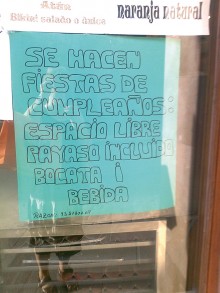 naranja natural
SE HACEN
FIESTAS DE
CUMPLEAÑOS:
ESPACIO LIBRE
PAYASO INCLUIDO
BOCATA I
BEBIDA